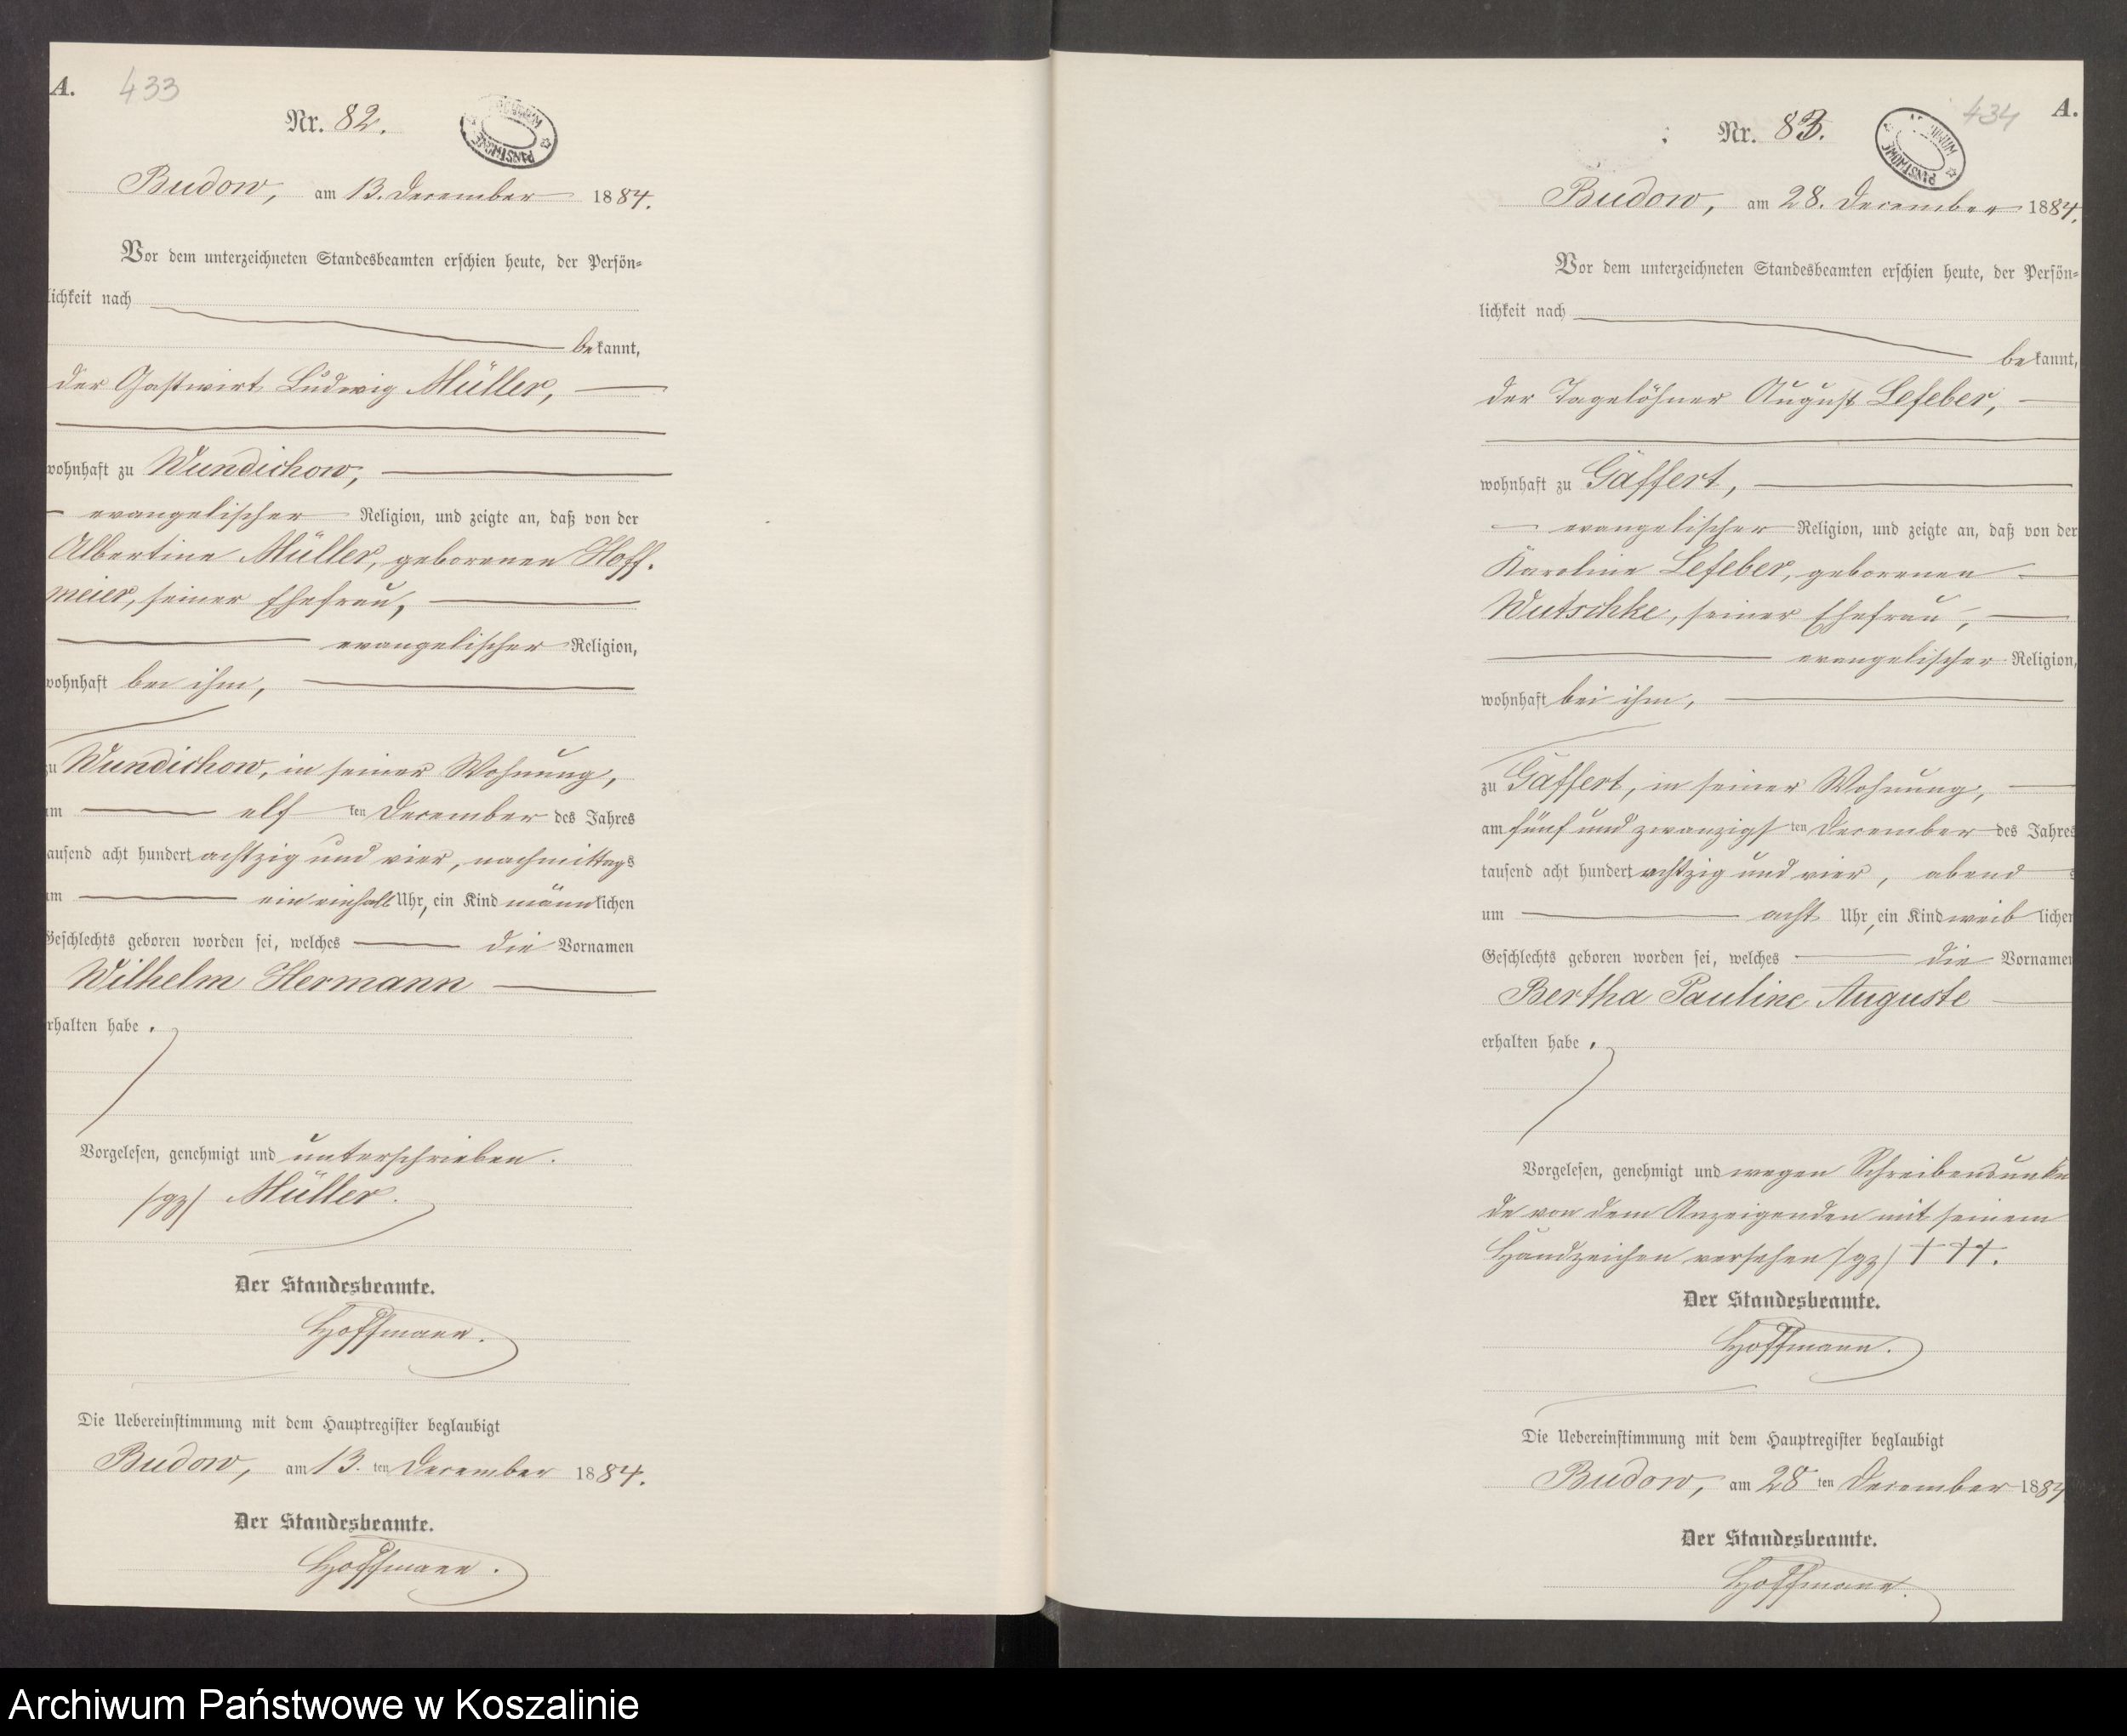 A. 433
Nr. 82.
Budow, am 13. December 1884.
Vor dem unterzeichneten Standesbeamten erschien heute, der Persön-
lichkeit nach
bekannt,
der Gastwirt Ludwig Müller,
wohnhaft zu Wundichow,
evangelischer Religion, und zeigte an, daß von der
Albertine Müller, geborenen Hoff-
meier, seiner Ehefrau,
evangelischer Religion,
wohnhaft bei ihm,
zu Wundichow, in seiner Wohnung,
am elf ten December des Jahres
tausend acht hundert achtzig und vier, nachmittags
um ein einhalb Uhr, ein Kind männlichen
Geschlechts geboren worden sei, welches die Vornamen
Wilhelm Hermann
erhalten habe.
Vorgelesen, genehmigt und unterschrieben.
/gz/ Müller.
Der Standesbeamte.
Hoffmann.
Die Uebereinstimmung mit dem Hauptregister beglaubigt
Budow, am 13. ten December 1884.
Der Standesbeamte.
Hoffmann.
434 A.
Nr. 83.
Budow, am 28. December 1884.
Vor dem unterzeichneten Standesbeamten erschien heute, der Persön-
lichkeit nach
bekannt,
der Tagelöhner August Lefeber,
wohnhaft zu Gaffert,
evangelischer Religion, und zeigte an, daß von der
Karoline Lefeber, geborenen
Wutschke, seiner Ehefrau,
evangelischer Religion,
wohnhaft bei ihm,
zu Gaffert, in seiner Wohnung,
am fünf und zwanzigsten December des Jahres
tausend acht hundert achtzig und vier, abends
um acht Uhr, ein Kind weiblichen
Geschlechts geboren worden sei, welches die Vornamen
Bertha Pauline Auguste
erhalten habe.
Vorgelesen, genehmigt und wegen Schreibensunkun
de von dem Anzeigenden mit seinem
Handzeichen versehen /gz/ +++.
Der Standesbeamte.
Hoffmann.
Die Uebereinstimmung mit dem Hauptregister beglaubigt
Budow, am 28 ten December 1884
Der Standesbeamte.
Hoffmann.
Archiwum Państwowe w Koszalinie